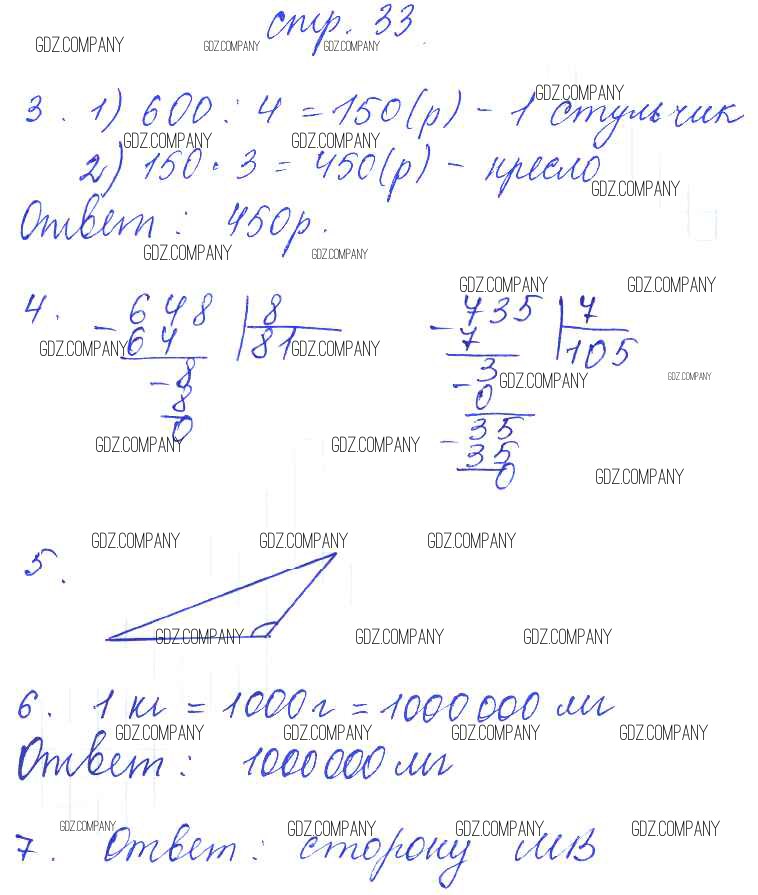 стр. 33
GDZ.COMPANY GDZ.COMPANY GDZ.COMPANY
GDZ.COMPANY
3. 1) 600 : 4 = 150 (р) - 1 стульчик
GDZ.COMPANY GDZ.COMPANY
2) 150 · 3 = 450 (р) - кресло
GDZ.COMPANY
Ответ: 450 р.
GDZ.COMPANY GDZ.COMPANY
GDZ.COMPANY GDZ.COMPANY
4. - 648 | 8 - 735 | 7
64 81 7 105
GDZ.COMPANY GDZ.COMPANY
- 8 - 3
GDZ.COMPANY GDZ.COMPANY
8 0
0 - 35
GDZ.COMPANY GDZ.COMPANY
35
0
GDZ.COMPANY
GDZ.COMPANY GDZ.COMPANY GDZ.COMPANY
5.
GDZ.COMPANY GDZ.COMPANY GDZ.COMPANY
6. 1 кг = 1000 г = 1000 000 мг
GDZ.COMPANY GDZ.COMPANY GDZ.COMPANY GDZ.COMPANY
Ответ: 1000 000 мг
GDZ.COMPANY GDZ.COMPANY GDZ.COMPANY GDZ.COMPANY
7. Ответ: сторону МВ